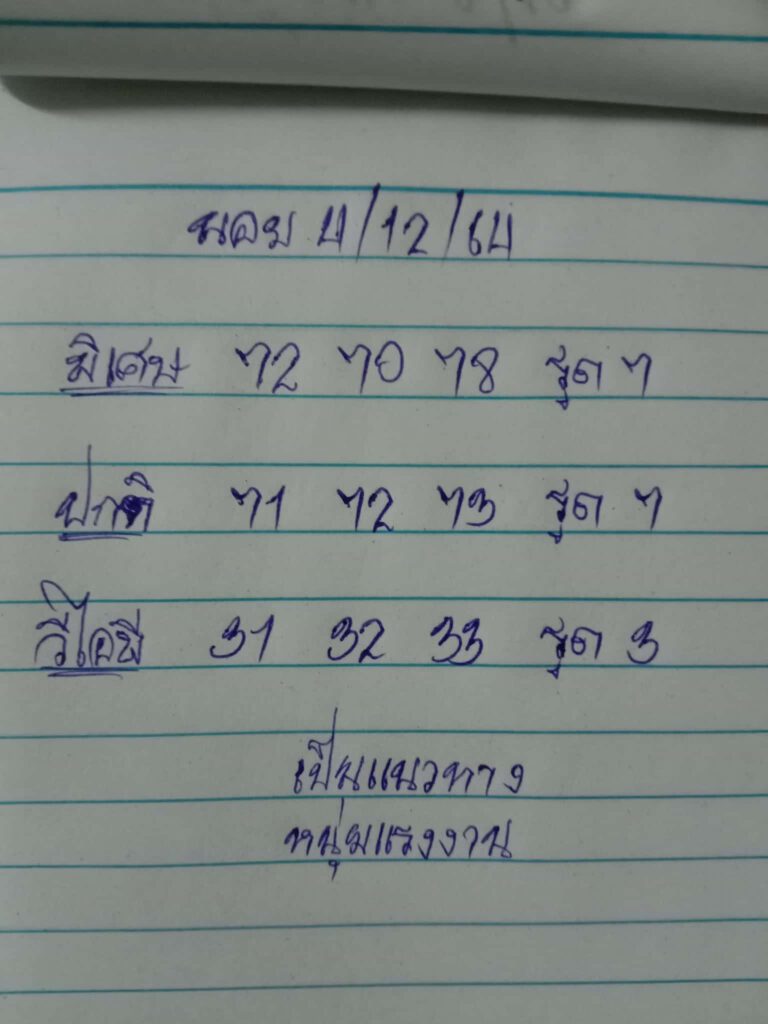 นอย 4/12/64
พิเศษ 72 70 78 รูด 7
ปกติ 71 72 73 รูด 7
วีไอพี 31 32 33 รูด 3
เป็นแนวทาง
หนุ่มแรงงาน